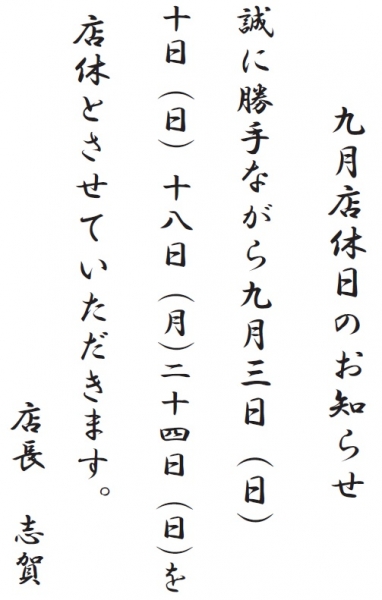 九月店休日のお知らせ
誠に勝手ながら九月三日（日）
十日（日）十八日（月）二十四日（日）を
店休とさせていただきます。
店長　志賀